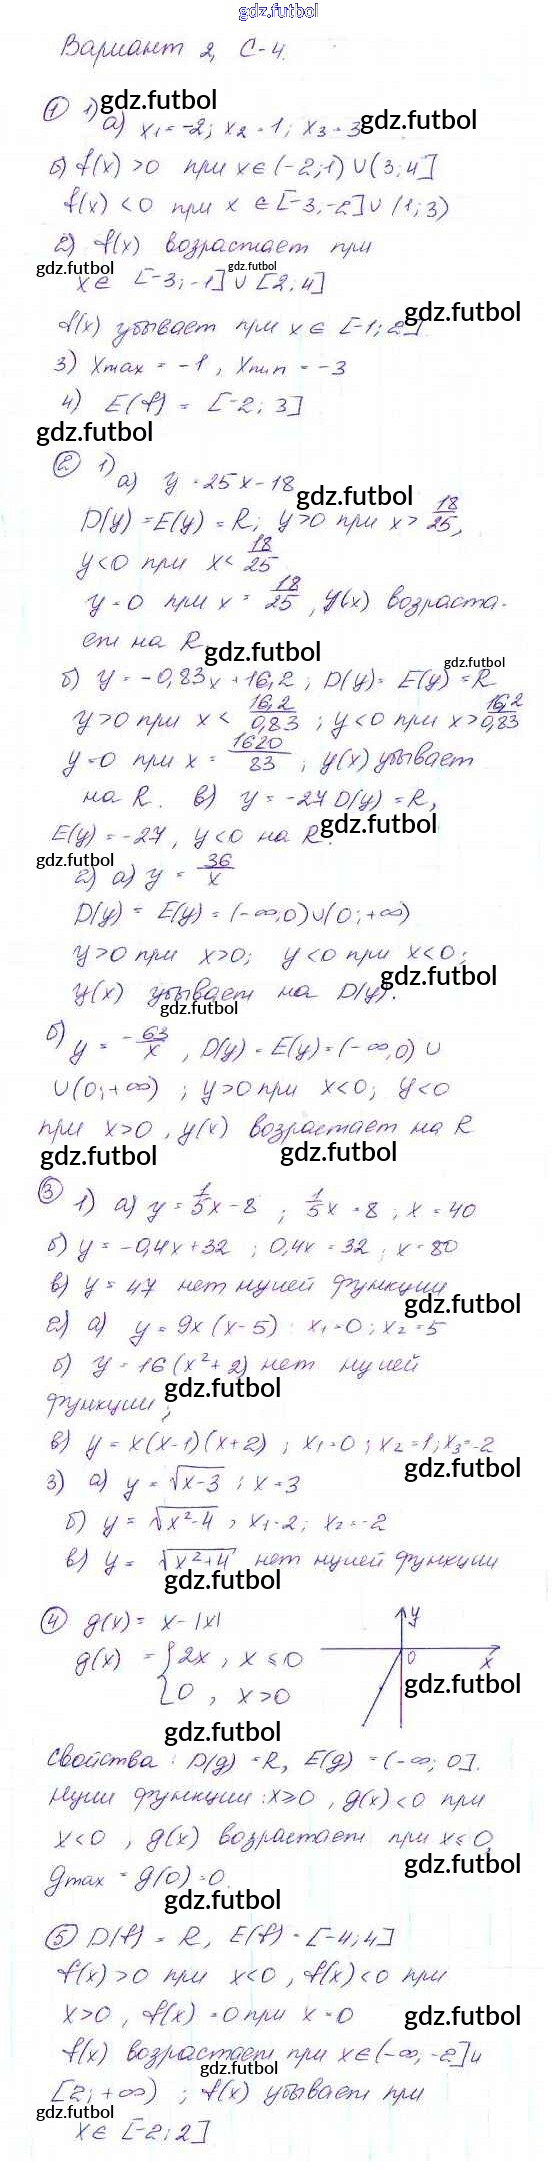 gdz.futbol
Вариант 2, С-4.
① 1) gdz.futbol
а) x₁ = -2; x₂ = 1; x₃ = 3 gdz.futbol
б) f(x) > 0 при x ∈ (-2; 1) ∪ (3; 4]
f(x) < 0 при x ∈ [-3; -2] ∪ (1; 3)
2) f(x) возрастает при
gdz.futbol gdz.futbol
x ∈ [-3; -1] ∪ [2; 4]
gdz.futbol
f(x) убывает при x ∈ [-1; 2].
3) Xmax = -1, Xmin = -3
4) E(f) = [-2; 3]
gdz.futbol
② 1) а) y = 25x - 18
gdz.futbol
D(y) = E(y) = R; y > 0 при x > 18/25,
y < 0 при x < 18/25
y = 0 при x = 18/25, y(x) возраста-
ет на R.
gdz.futbol
gdz.futbol
б) y = -0,83x + 16,2; D(y) = E(y) = R
y > 0 при x < 16,2/0,83; y < 0 при x > 16,2/0,83
y = 0 при x = 1620/83; y(x) убывает
на R. в) y = -27 D(y) = R,
gdz.futbol
E(y) = -27, y < 0 на R.
gdz.futbol
2) а) y = 36/x
D(y) = E(y) = (-∞, 0) ∪ (0; +∞)
y > 0 при x > 0; y < 0 при x < 0;
gdz.futbol
y(x) убывает на D(y).
gdz.futbol
б) y = -63/x, D(y) = E(y) = (-∞, 0) ∪
∪ (0; +∞); y > 0 при x < 0; y < 0
при x > 0, y(x) возрастает на R
gdz.futbol gdz.futbol
③ 1) а) y = 1/5x - 8; 1/5x = 8, x = 40
б) y = -0,4x + 32; 0,4x = 32; x = 80
в) y = 47 нет нулей функции
gdz.futbol
2) а) y = 9x(x - 5) : x₁ = 0; x₂ = 5
б) y = 16(x² + 2) нет нулей
gdz.futbol
функции;
в) y = x(x-1)(x+2); x₁ = 0; x₂ = 1; x₃ = -2
gdz.futbol
3) а) y = √x-3; x = 3
б) y = √x²-4, x₁ = 2; x₂ = -2
в) y = √x²+4 нет нулей функции
gdz.futbol
④ g(x) = x - |x| y
g(x) = {2x, x ≤ 0 0 x
0, x > 0 gdz.futbol
gdz.futbol
Свойства: D(g) = R, E(g) = (-∞; 0].
Нули функции: x ≥ 0, g(x) < 0 при
x < 0, g(x) возрастает при x ≤ 0,
gdz.futbol
gmax = g(0) = 0.
gdz.futbol
⑤ D(f) = R, E(f) = [-4; 4]
f(x) > 0 при x < 0, f(x) < 0 при
x > 0, f(x) = 0 при x = 0
gdz.futbol
f(x) возрастает при x ∈ (-∞, -2] и
gdz.futbol
[2; +∞); f(x) убывает при
gdz.futbol
x ∈ [-2; 2]